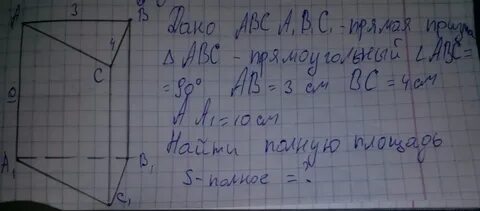 A 3 B
4
C
A₁ B₁
C₁
Дано ABC A₁B₁C₁ - прямая призма
Δ ABC - прямоугольный ∠ABC=
= 90° AB = 3 см BC = 4 см
A A₁ = 10 см
Найти полную площадь
S-полное = ?